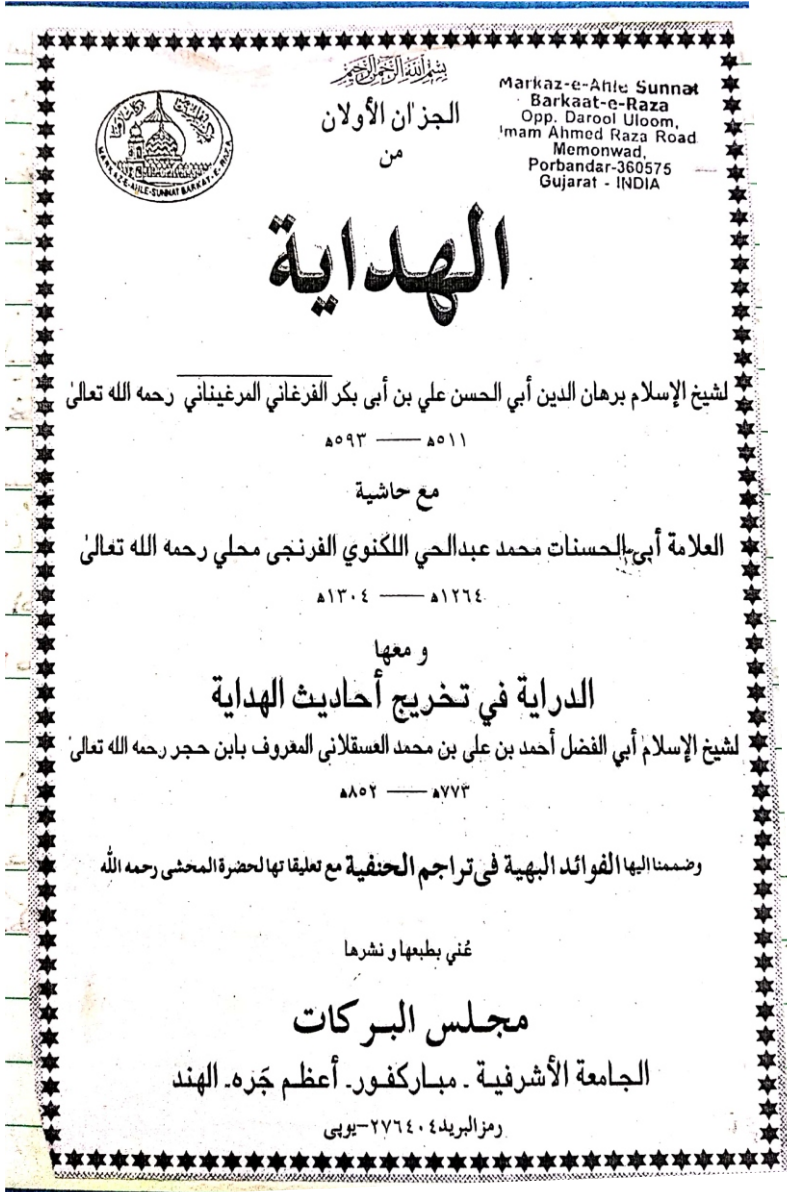 بسم الله الرحمن الرحيم
الجزان الأولان
من
Markaz-e-Ahle Sunnat
Barkaat-e-Raza
Opp. Darool Uloom,
Imam Ahmed Raza Road
Memonwad,
Porbandar-360575
Gujarat - INDIA
MARKAZ-E-AHLE-SUNNAT BARKAT-E-RAZA
الهداية
لشيخ الإسلام برهان الدين أبي الحسن علي بن أبى بكر الفرغاني المرغيناني رحمه الله تعالىٰ
٥١١ﻫ —— ٥٩٣ﻫ
مع حاشية
العلامة أبى الحسنات محمد عبدالحي اللكنوي الفرنجى محلي رحمه الله تعالىٰ
١٢٦٤ﻫ —— ١٣٠٤ﻫ
و معها
الدراية في تخريج أحاديث الهداية
لشيخ الإسلام أبي الفضل أحمد بن على بن محمد العسقلانى المعروف بابن حجر رحمه الله تعالىٰ
٧٧٣ﻫ —— ٨٥٢ﻫ
وضممنا إليها الفوائد البهية فى تراجم الحنفية مع تعليقاتها لحضرة المحشى رحمه الله
عُني بطبعها و نشرها
مجلس البركات
الجامعة الأشرفية ـ مباركفور ـ أعظم جَره ـ الهند
رمز البريد ٢٧٦٤٠٤-يوپى